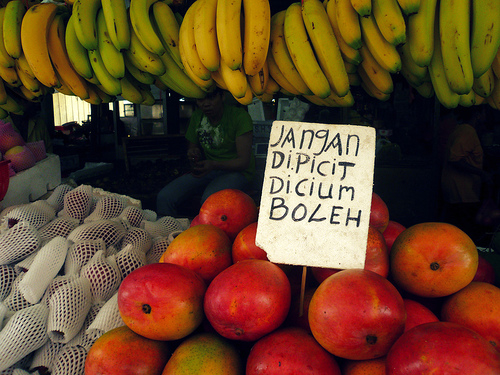 JANGAN
DIPICIT
DICIUM
BOLEH